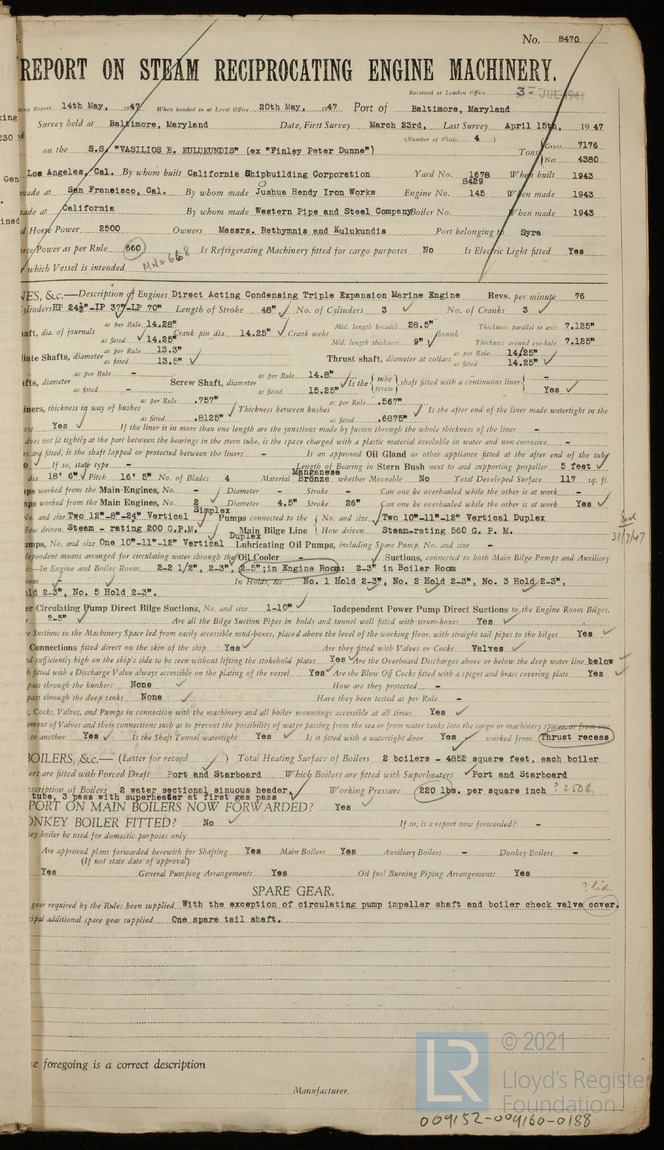 No. 8470
REPORT ON STEAM RECIPROCATING ENGINE MACHINERY.
Received at London Office 3-
Report. 14th May, 1947 When handed in at Local Office 20th May, 1947 Port of Baltimore, Maryland
Survey held at Baltimore, Maryland Date, First Survey March 23rd, Last Survey April 15th, 1947
(Number of Visits 4)
on the S.S. "VASILIOS E. KULUKUNDIS" (ex "Finley Peter Dunne") Tons Gross 7176 Net 4380
Los Angeles, Cal. By whom built California Shipbuilding Corporation Yard No. 1678 When built 1943
8429
made at San Francisco, Cal. By whom made Jushua Hendy Iron Works Engine No. 145 When made 1943
made at California By whom made Western Pipe and Steel Company Boiler No. When made 1943
Horse Power 2500 Owners Messrs. Rethymnis and Kulukundis Port belonging to Syra
Horse Power as per Rule 660 Is Refrigerating Machinery fitted for cargo purposes No Is Electric Light fitted Yes
MN=668
which Vessel is intended
NES, &c.—Description of Engines Direct Acting Condensing Triple Expansion Marine Engine Revs. per minute 76
Cylinders HP 24½"-IP 37"-LP 70" Length of Stroke 48" No. of Cylinders 3 No. of Cranks 3
haft, dia. of journals as per Rule 14.28" as fitted 14.25" Crank pin dia. 14.25" Crank webs Mid. length breadth 28.5" Mid. length thickness 9" shrunk Thickness parallel to axis 7.125" Thickness around eye-hole 7.125"
iate Shafts, diameter as per Rule 13.3" as fitted 13.5" Thrust shaft, diameter at collars as per Rule 14.25" as fitted 14.25"
fts, diameter as per Rule - as fitted - Screw Shaft, diameter as per Rule 14.8" as fitted 15.25" Is the tube screw shaft fitted with a continuous liner - Yes
iners, thickness in way of bushes as per Rule .757" as fitted .8125" Thickness between bushes as per Rule .567" as fitted .6875" Is the after end of the liner made watertight in the
Yes If the liner is in more than one length are the junctions made by fusion through the whole thickness of the liner -
does not fit tightly at the part between the bearings in the stern tube, is the space charged with a plastic material insoluble in water and non-corrosive -
are fitted, is the shaft lapped or protected between the liners - Is an approved Oil Gland or other appliance fitted at the after end of the tube
If so, state type - Length of Bearing in Stern Bush next to and supporting propeller 5 feet
dia 18' 6" Pitch 16' 5" No. of Blades 4 Material Manganese Bronze whether Moveable No Total Developed Surface 117 sq. ft.
ps worked from the Main Engines, No. - Diameter - Stroke - Can one be overhauled while the other is at work -
ps worked from the Main Engines, No. 2 Diameter 4.5" Stroke 26" Can one be overhauled while the other is at work Yes
No. and size Two 12"-8"-24" Vertical Simplex Pumps connected to the Main Bilge Line No. and size Two 10"-11"-12" Vertical Duplex
How driven Steam - rating 200 G.P.M. How driven Steam-rating 560 G. P. M.
umps, No. and size One 10"-11"-12" Vertical Duplex Lubricating Oil Pumps, including Spare Pump, No. and size -
ependent means arranged for circulating water through the Oil Cooler - Suctions, connected to both Main Bilge Pumps and Auxiliary
—In Engine and Boiler Room 2-2 1/2", 2-3", (2-5" in Engine Room: 2-3" in Boiler Room
In Holds, &c. No. 1 Hold 2-3", No. 2 Hold 2-3", No. 3 Hold 2-3",
ld 2-3", No. 5 Hold 2-3".
er Circulating Pump Direct Bilge Suctions, No. and size 1-10" Independent Power Pump Direct Suctions to the Engine Room Bilges,
2-5" Are all the Bilge Suction Pipes in holds and tunnel well fitted with strum-boxes Yes
e Suctions in the Machinery Space led from easily accessible mud-boxes, placed above the level of the working floor, with straight tail pipes to the bilges Yes
Connections fitted direct on the skin of the ship Yes Are they fitted with Valves or Cocks Valves
d sufficiently high on the ship's side to be seen without lifting the stokehold plates Yes Are the Overboard Discharges above or below the deep water line below
h fitted with a Discharge Valve always accessible on the plating of the vessel Yes Are the Blow Off Cocks fitted with a spigot and brass covering plate Yes
pass through the bunkers None How are they protected -
pass through the deep tanks None Have they been tested as per Rule -
, Cocks, Valves, and Pumps in connection with the machinery and all boiler mountings accessible at all times Yes
ement of Valves and their connections such as to prevent the possibility of water passing from the sea or from water tanks into the cargo or machinery spaces, or from one
to another Yes Is the Shaft Tunnel watertight Yes Is it fitted with a watertight door Yes worked from Thrust recess
BOILERS, &c.— (Letter for record ) Total Heating Surface of Boilers 2 boilers - 4852 square feet, each boiler
ers are fitted with Forced Draft Port and Starboard Which Boilers are fitted with Superheaters Port and Starboard
escription of Boilers 2 water sectional sinuous header, Working Pressure 220 lbs. per square inch ? 250 lb.
tube, 3 pass with superheader at first gas pass
PORT ON MAIN BOILERS NOW FORWARDED? Yes
ONKEY BOILER FITTED? No If so, is a report now forwarded? -
ey boiler be used for domestic purposes only
Are approved plans forwarded herewith for Shafting Yes Main Boilers Yes Auxiliary Boilers - Donkey Boilers -
(If not state date of approval)
Yes General Pumping Arrangements Yes Oil fuel Burning Piping Arrangements Yes
SPARE GEAR.
? lid
gear required by the Rules been supplied With the exception of circulating pump impeller shaft and boiler check valve cover.
ipal additional spare gear supplied One spare tail shaft.
e foregoing is a correct description
Manufacturer.
LR © 2021
Lloyd's Register
Foundation
009152-009160-0188